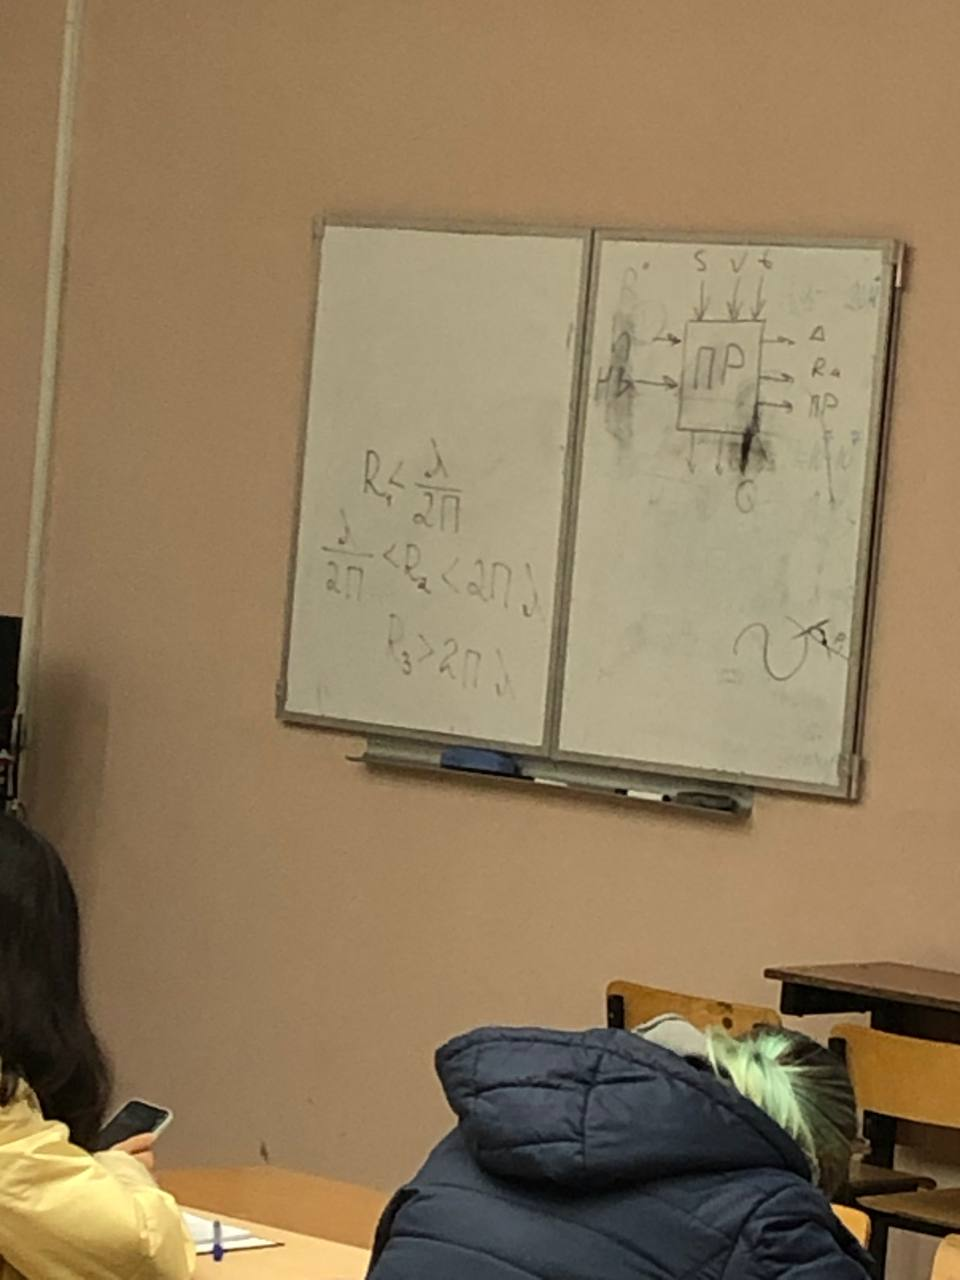 R₁ < λ/2П
λ/2П < R₂ < 2Пλ
R₃ > 2Пλ
S V t
ПР
Δ
Ra
ПР